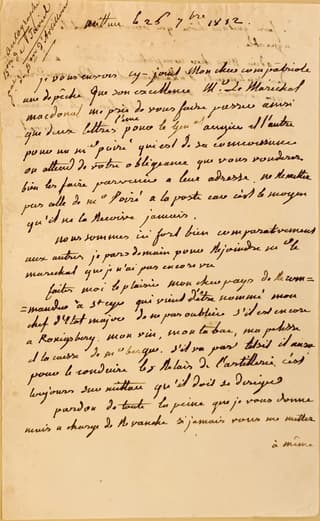 mittau le 26 7bre 1812.
je vous envois cy-joint Mon cher compatriote
une depêche que son excellence Mr. Le Marechal
macdonal me prie de vous faire passer ainsi
que deux lettres l'une pour le et l'autre
pour un mr poiré qui est de sa connoissance
on attend de votre obligeance que vous voudrez
bien les faire parvenir a leur adresse, ne Remettez
pas celle de mr Poiré a la poste car c'est le moyen
qu'il ne la Recoive jamais.
nous sommes ici fort bien comparativement
aux autres, je pars demain pour Rejoindre mr le
marechal que je n'ai pas encore vu
faites moi le plaisir mon cher pays de Recom=
=mander a St cyr qui vient d'être nommé mon
chef d'Etat major de ne pas oublier s'il est encore
a Konigsberg, mon vin, mon tabac, ma pelisse
et la caisse de mr s'il va par tilsit il aura
pour le conduire les Relais de l'artillerie, c'est
toujours sur mittau qu'il doit se diriger
pardon de toute la peine que je vous donne
mais a charge de Revanche si jamais vous me mettez
à même